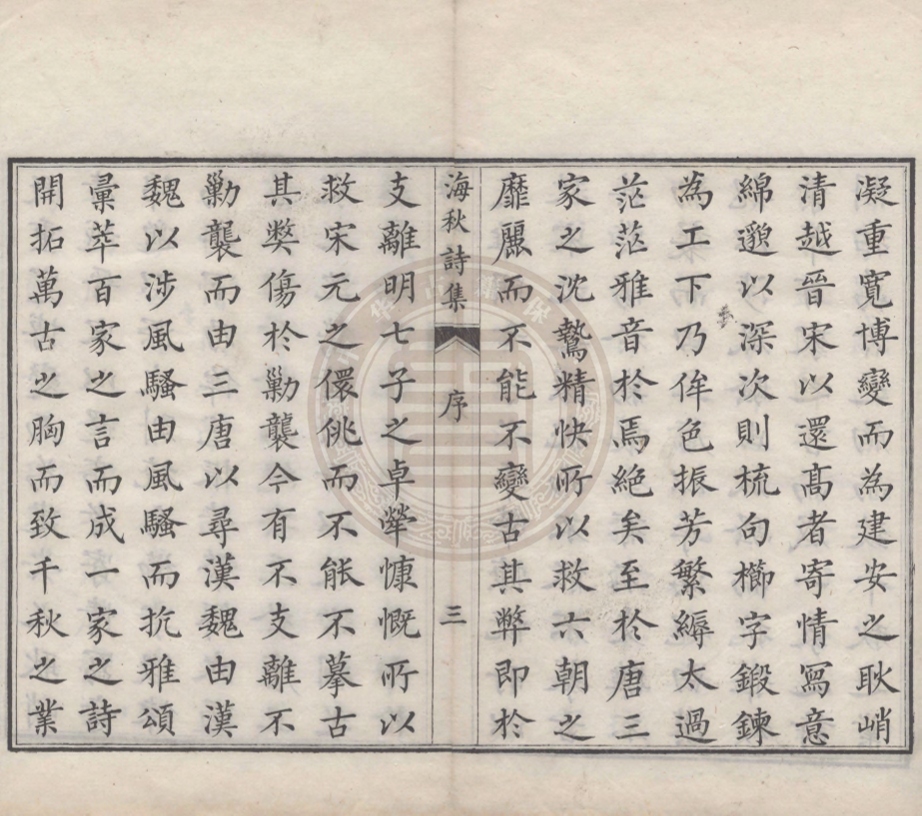 凝重寬博變而為建安之耿峭
清越晉宋以還髙者寄情寫意
綿邈以深次則梳句櫛字鍛鍊
為工下乃侔色振芳繁縟太過
茫茫雅音於焉絕矣至於唐三
家之沈鷙精快所以救六朝之
靡麗而不能不變古其弊即於
海秋詩集
序
三
支離明七子之卓犖慷慨所以
救宋元之儇佻而不能不摹古
其獘傷於勦襲今有不支離不
勦襲而由三唐以尋漢魏由漢
魏以涉風騷由風騷而抗雅頌
彙萃百家之言而成一家之詩
開拓萬古之胸而致千秋之業